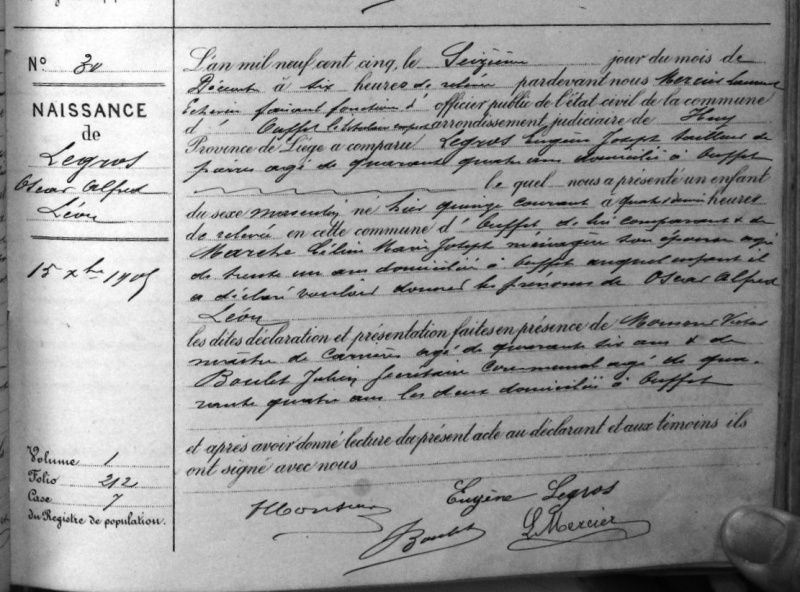 N° 30
NAISSANCE
de
Legros
Oscar Alfred
Léon
15 xbre 1905
Volume 1
Folio 212
Case 7
du Registre de population.
L'an mil neuf cent cinq, le Seizième jour du mois de
Décembre à six heures de relevée pardevant nous Mercier
Echevin faisant fonction d' officier public de l'état civil de la commune
d' Ouffet arrondissement judiciaire de Huy
Province de Liège a comparu Legros Eugène Joseph tailleur de
pierres agé de quarante quatre ans domicilié à Ouffet
le quel nous a présenté un enfant
du sexe masculin né hier quinze courant à quatre heures
de relevée en cette commune d' Ouffet de lui comparant & de
Marche Marie Joseph ménagère son épouse agée
de trente un ans domiciliée à Ouffet auquel enfant il
a déclaré vouloir donner les prénoms de Oscar Alfred
Léon
les dites déclaration et présentation faites en présence de Victor
maître de carrières agé de quarante six ans & de
Boulet Julien Secrétaire communal agé de qua-
rante quatre ans les deux domiciliés à Ouffet
et après avoir donné lecture du présent acte au déclarant et aux témoins ils
ont signé avec nous
Eugène Legros
Boulet
L Mercier